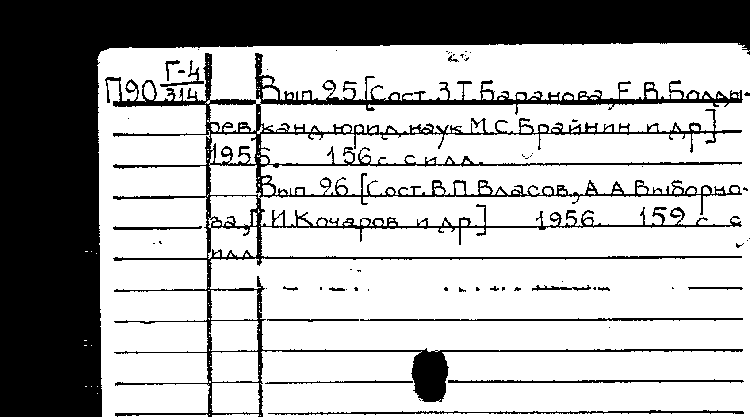 26
Г-4
П90 314 Вып. 25 [Сост. З.Т. Баранова, Е.В. Болды-
рев, канд. юрид. наук М.С. Брайнин и др.]
1956. 156 с. с илл.
Вып. 26. [Сост. В.П. Власов, А.А. Выборно-
ва, Г.И. Кочаров и др.] 1956. 159 с. с
илл.